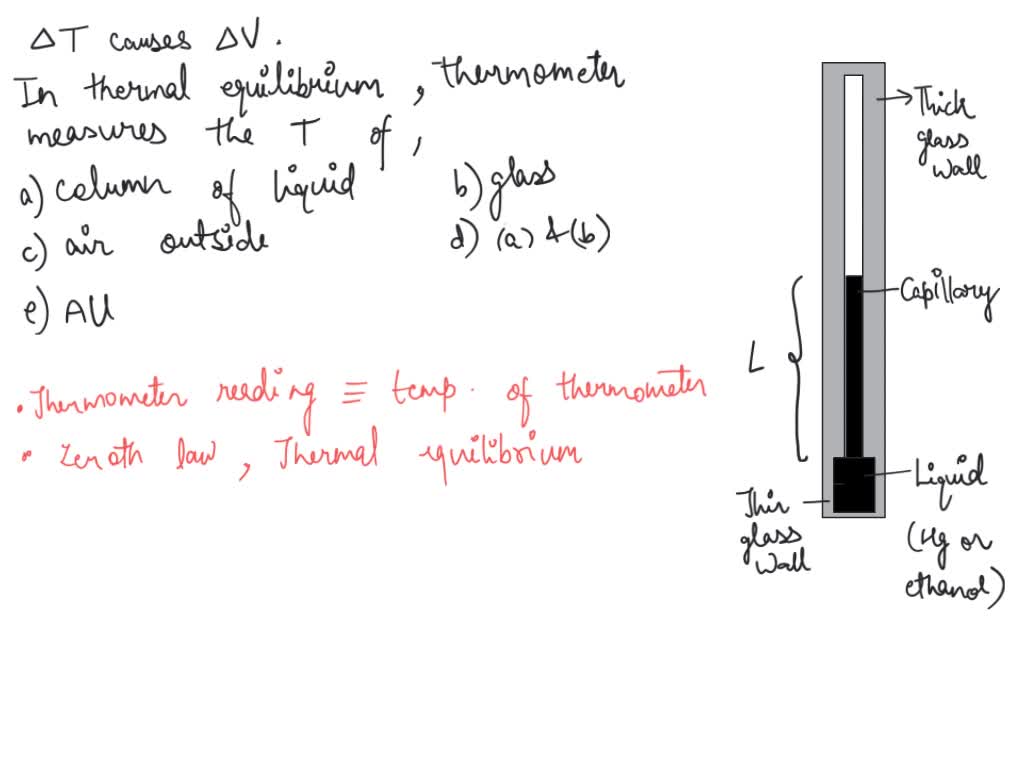 ΔT causes ΔV.
In thermal equilibrium, thermometer
measures the T of,
a) column of liquid b) glass
c) air outside d) (a) & (b)
e) All
• Thermometer reading ≡ temp. of thermometer
• Zeroth law, Thermal equilibrium
Thick
glass
wall
Capillary
L
Liquid
(Hg or
ethanol)
Thin
glass
wall